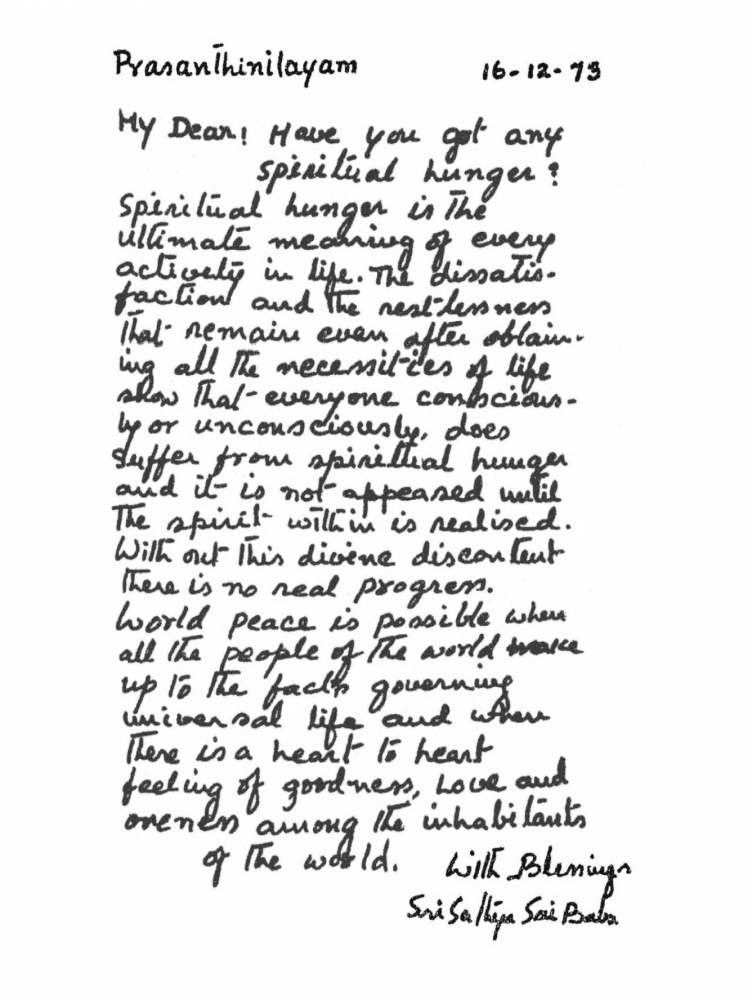 Prasanthinilayam 16-12-73
My Dear! Have you got any
spiritual hunger?
Spiritual hunger is the
ultimate meaning of every
activety in life. The dissatis-
faction and the rest-lessness
that remain even after obtain-
ing all the necessities of life
show that everyone conscious-
ly or unconsciously, does
suffer from spiritual hunger
and it is not appeased until
the spirit within is realised.
With out this divine discontent
there is no real progress.
World peace is possible when
all the people of the world
up to the facts governing
universal life and when
there is a heart to heart
feeling of goodness, Love and
oneness among the inhabitants
of the world. With Blessings
Sri Sathya Sai Baba